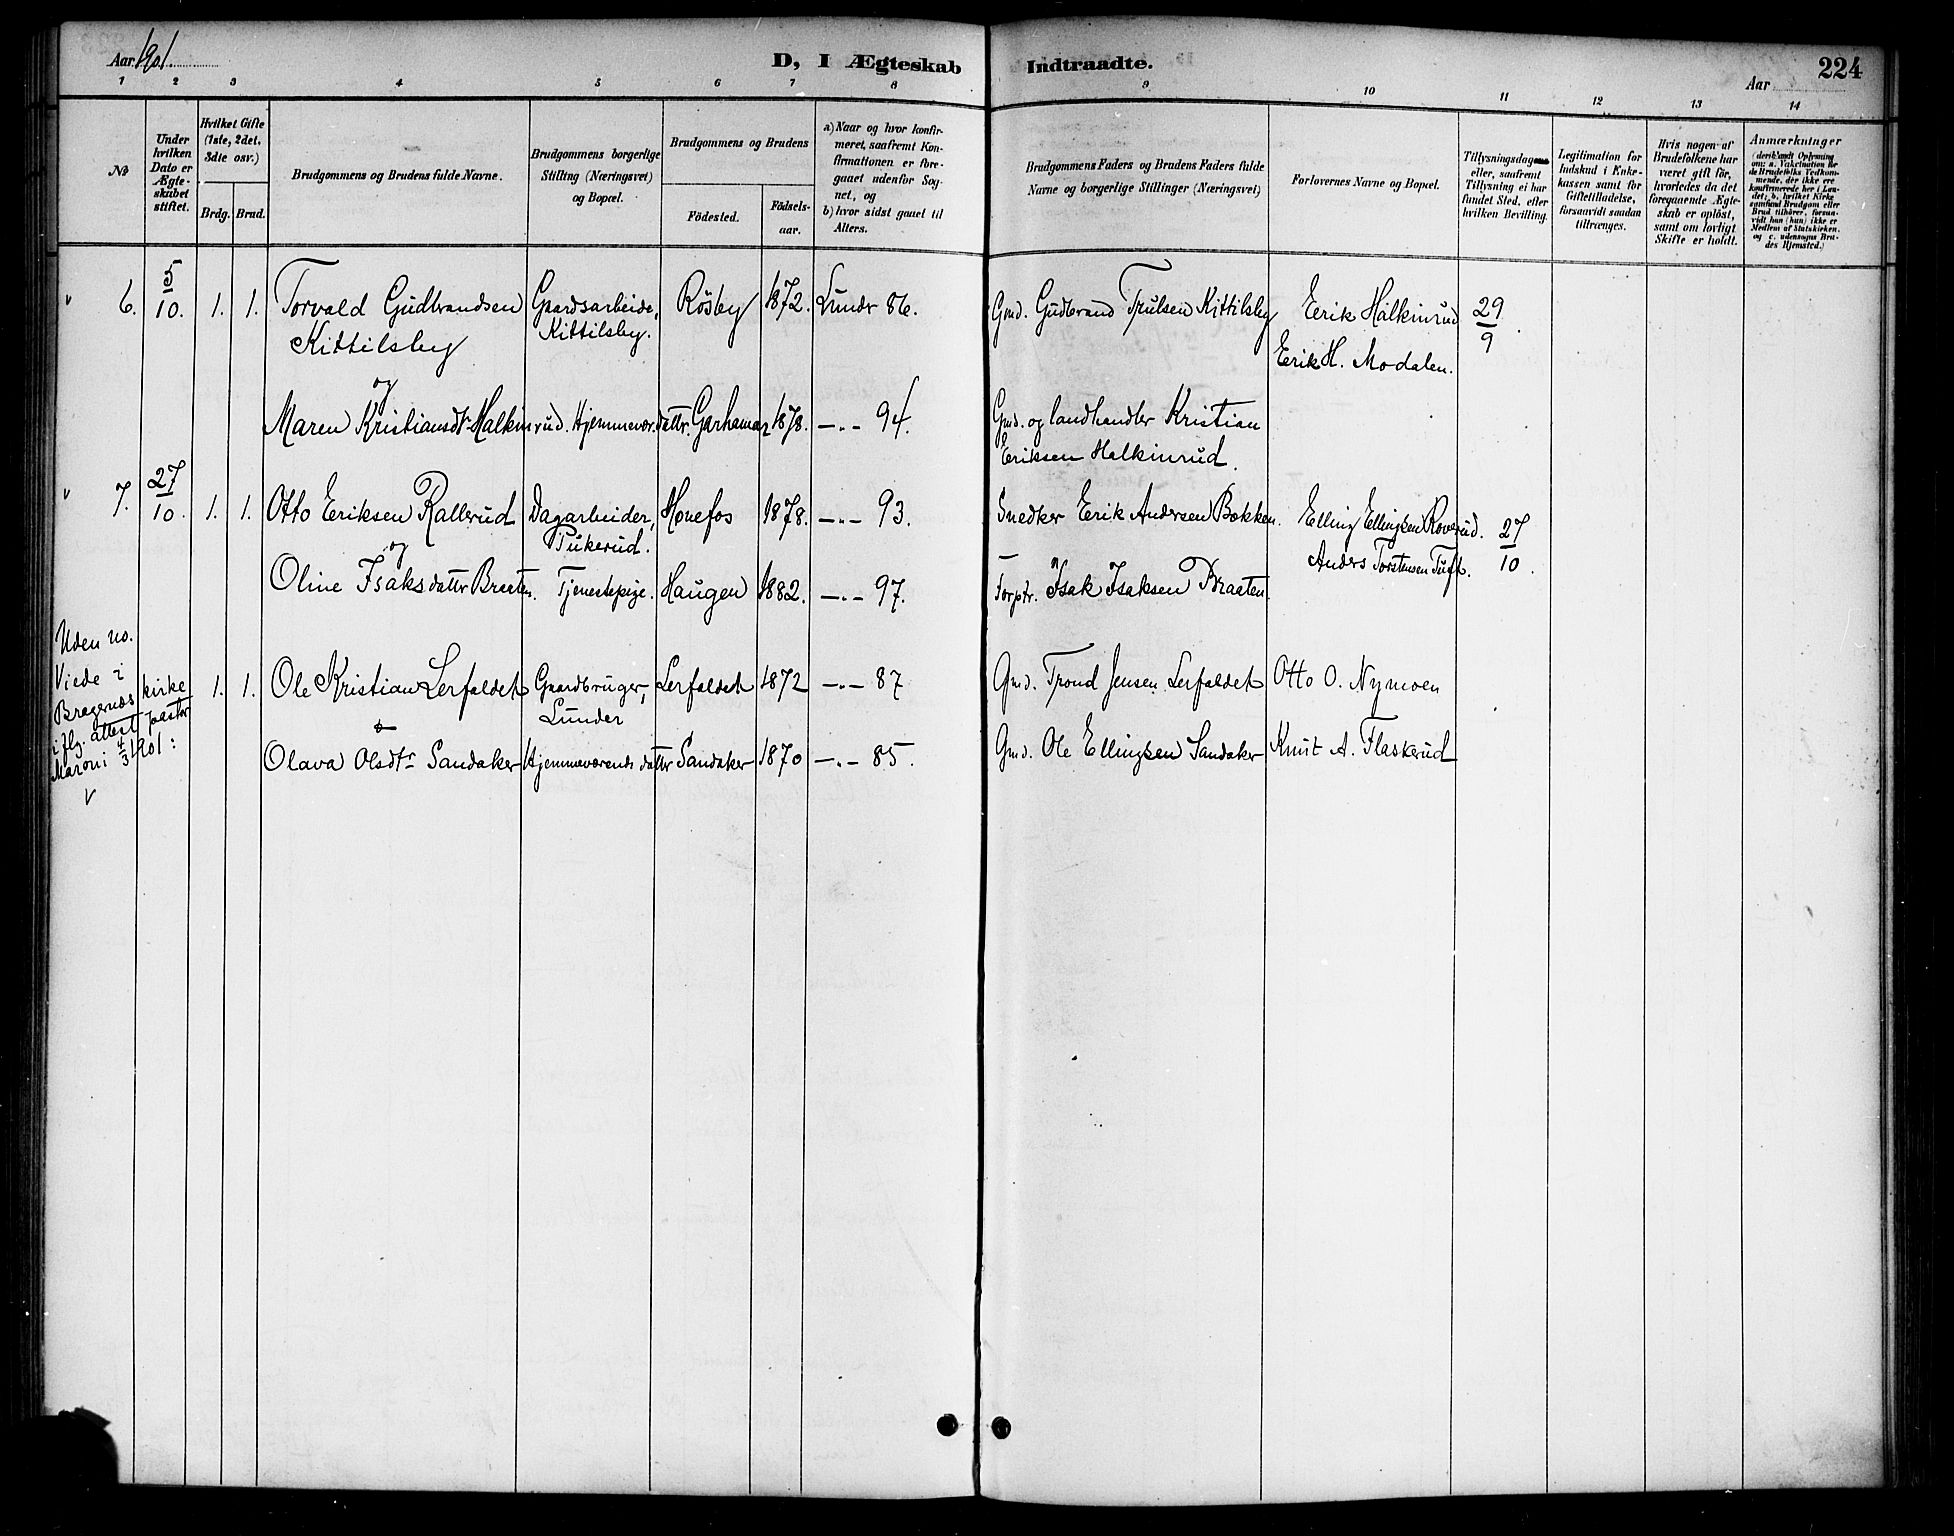 Aar 1901.
D, I Ægteskab Indtraadte.
Aar
224
1 2 3 4 5 6 7 8 9 10 11 12 13 14
No
Under hvilken Dato er Ægteskabet stiftet.
Hvilket Gifte (1ste, 2det, 3die osv.)
Brdg. Brud.
Brudgommens og Brudens fulde Navne.
Brudgommens borgerlige Stilling (Næringsvei) og Bopæl.
Brudgommens og Brudens
Födested.
Födsels-aar.
a) Naar og hvor konfirmeret, saafremt Konfirmationen er foregaaet udenfor Sognet, og
b) hvor sidst gaaet til Alters.
Brudgommens Faders og Brudens Faders fulde Navne og borgerlige Stillinger (Næringsvei)
Forlovernes Navne og Bopæl.
Tillysningsdag eller, saafremt Tillysning ei har fundet Sted, efter hvilken Bevilling.
Legitimation for Indskud i Enkekassen samt for Giftetilladelse, forsaavidt saadan tiltrænges.
Hvis nogen af Brudefolkene har været gift för, hvorledes da det foregaaende Ægteskab er oplöst, samt om lovligt Skifte er holdt.
Anmærkninger
6. 5/10. 1. 1. Torvald Gudbrandsen Gaardsarbeide, Rösby 1872. Lunder 86. Gmd. Gudbrand Trulsen Kittilsby Erik Halkinrud 29/9.
Kittilsby Kittilsby. Erik H. Modalen.
og
Maren Kristiansdtr Halkinrud. Hjemmevær. dattr. Garhamar 1878. —"— 94. Gmd. og landhandler Kristian
Eriksen Halkinrud.
7. 27/10. 1. 1. Otto Eriksen Rallerud Dagarbeider, Hönefos 1878. —"— 93. Snedker Erik Andersen Bakken. Elling Ellingsen Roverud. 27/10.
og Pukerud. Anders Torstensen Tuft.
Oline Isaksdatter Braaten. Tjenestepige. Haugen 1882. —"— 97. Isak Isaksen Braaten.
Uden no.
Viede i
Bragernes kirke 1. 1. Ole Kristian Lerfaldet Gaardbruger, Lerfaldet 1872 —"— 87 Gmd. Trond Jensen Lerfaldet Otto O. Nymoen
iflg. attest pastor Lunder
Maroni 4/3 1901:
Olava Olsdtr Sandaker Hjemmeværende datter Sandaker 1870 —"— 85. Gmd. Ole Ellingsen Sandaker Knut A. Flaskerud